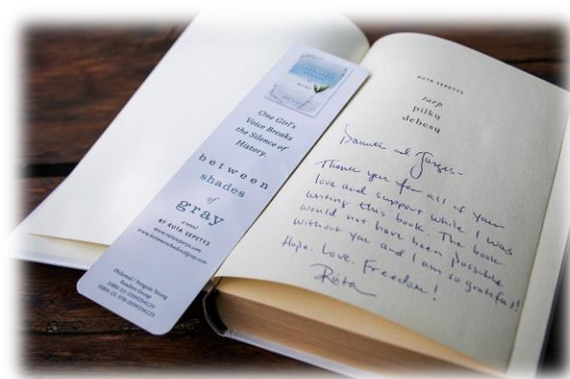 One Girl's
Voice Breaks
the Silence of
History.
between
shades
of
gray
a novel
BY RUTA SEPETYS
www.rutasepetys.com
www.betweenshadesofgray.com
Philomel / Penguin Young
Readers Group
RUTA SEPETYS
tarp
pilkų
debesų
and Jurgis –
Thank you for all of your
love and support while I was
writing this book. The book
would not have been possible
without you and I am so grateful!
Hope. Love. Freedom!
Rūta